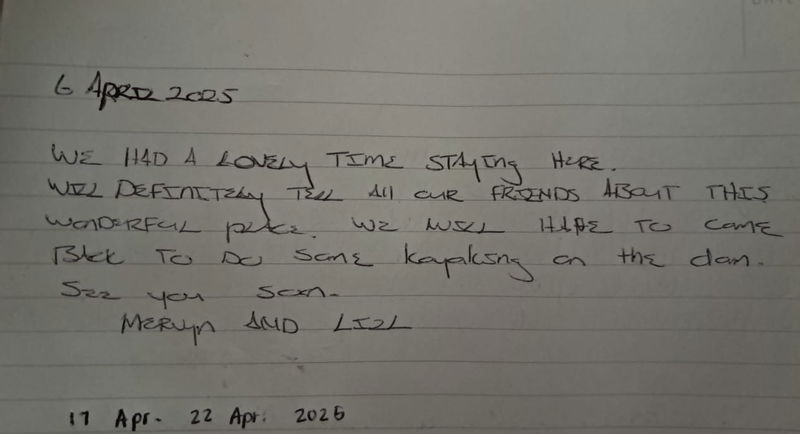 6 APRIL 2025
WE HAD A LOVELY TIME STAYING HERE.
WILL DEFINITELY TELL All OUR FRIENDS ABOUT THIS
WONDERFUL place. WE WILL HAVE TO COME
BACK TO DO SOME kayaking on the dam.
SEE you soon.
MERVYN AND LIZL
17 Apr. - 22 Apr. 2025